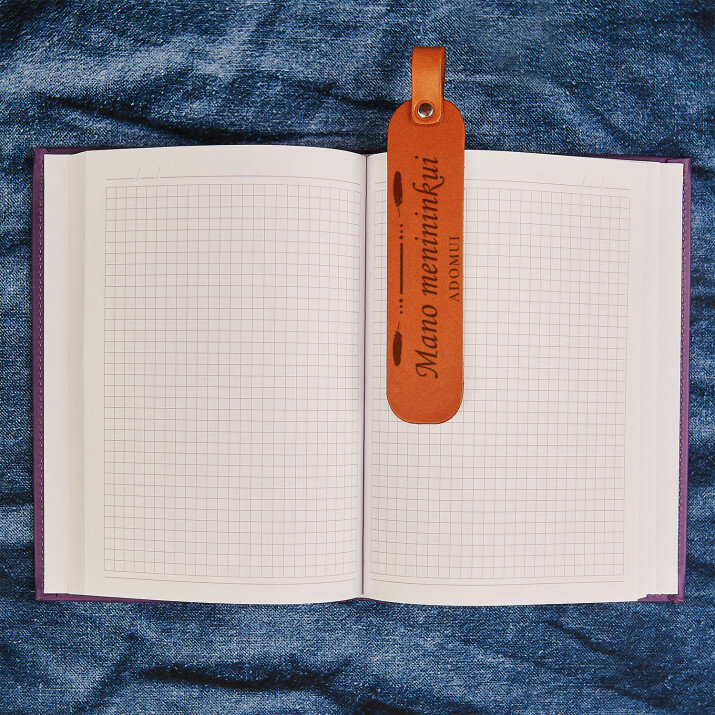 Mano menininkui
ADOMUI